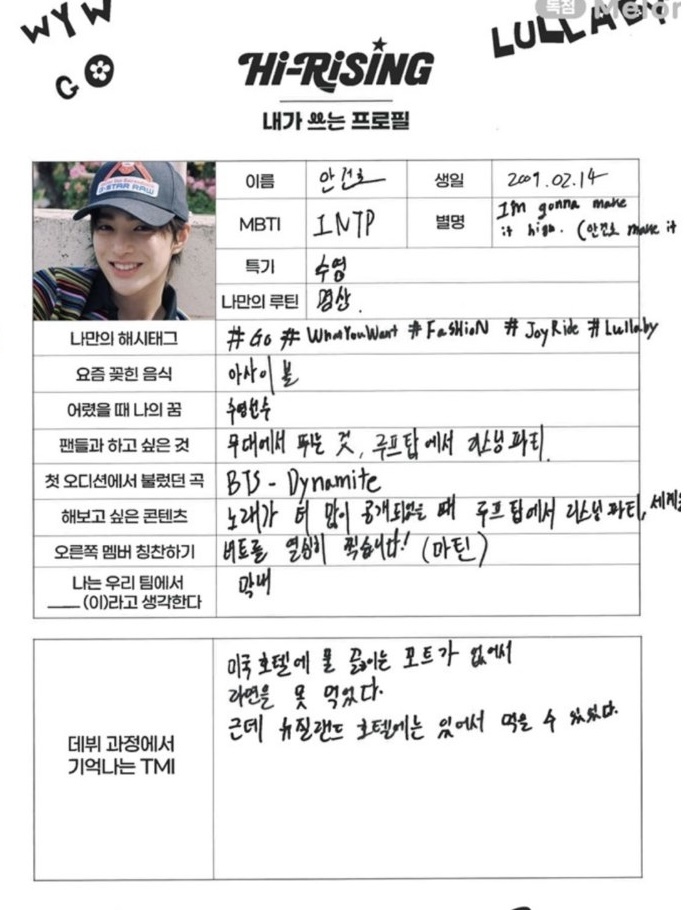 WYW
GO
독점 Melon
LULLABY
Hi-RiSiNG
내가 쓰는 프로필
G-STAR RAW
이름 안건호 생일 2009.02.14
MBTI INTP 별명 I'm gonna make
it high. (안건호 make it
특기 수영
나만의 루틴 명상.
나만의 해시태그 #Go #WhatYouWant #FaSHioN #JoyRide #Lullaby
요즘 꽂힌 음식 아사이 볼
어렸을 때 나의 꿈 수영선수
팬들과 하고 싶은 것 무대에서 뛰는 것, 루프탑에서 리스닝 파티.
첫 오디션에서 불렀던 곡 BTS - Dynamite
해보고 싶은 콘텐츠 노래가 더 많이 공개되었을 때 루프탑에서 리스닝 파티,
오른쪽 멤버 칭찬하기 비트를 열심히 찍습니다! (마틴)
나는 우리 팀에서
____ (이)라고 생각한다
막내
데뷔 과정에서
기억나는 TMI
미국 호텔에 물 끓이는 포트가 없어서
라면을 못 먹었다.
근데 뉴질랜드 호텔에는 있어서 먹을 수 있었다.